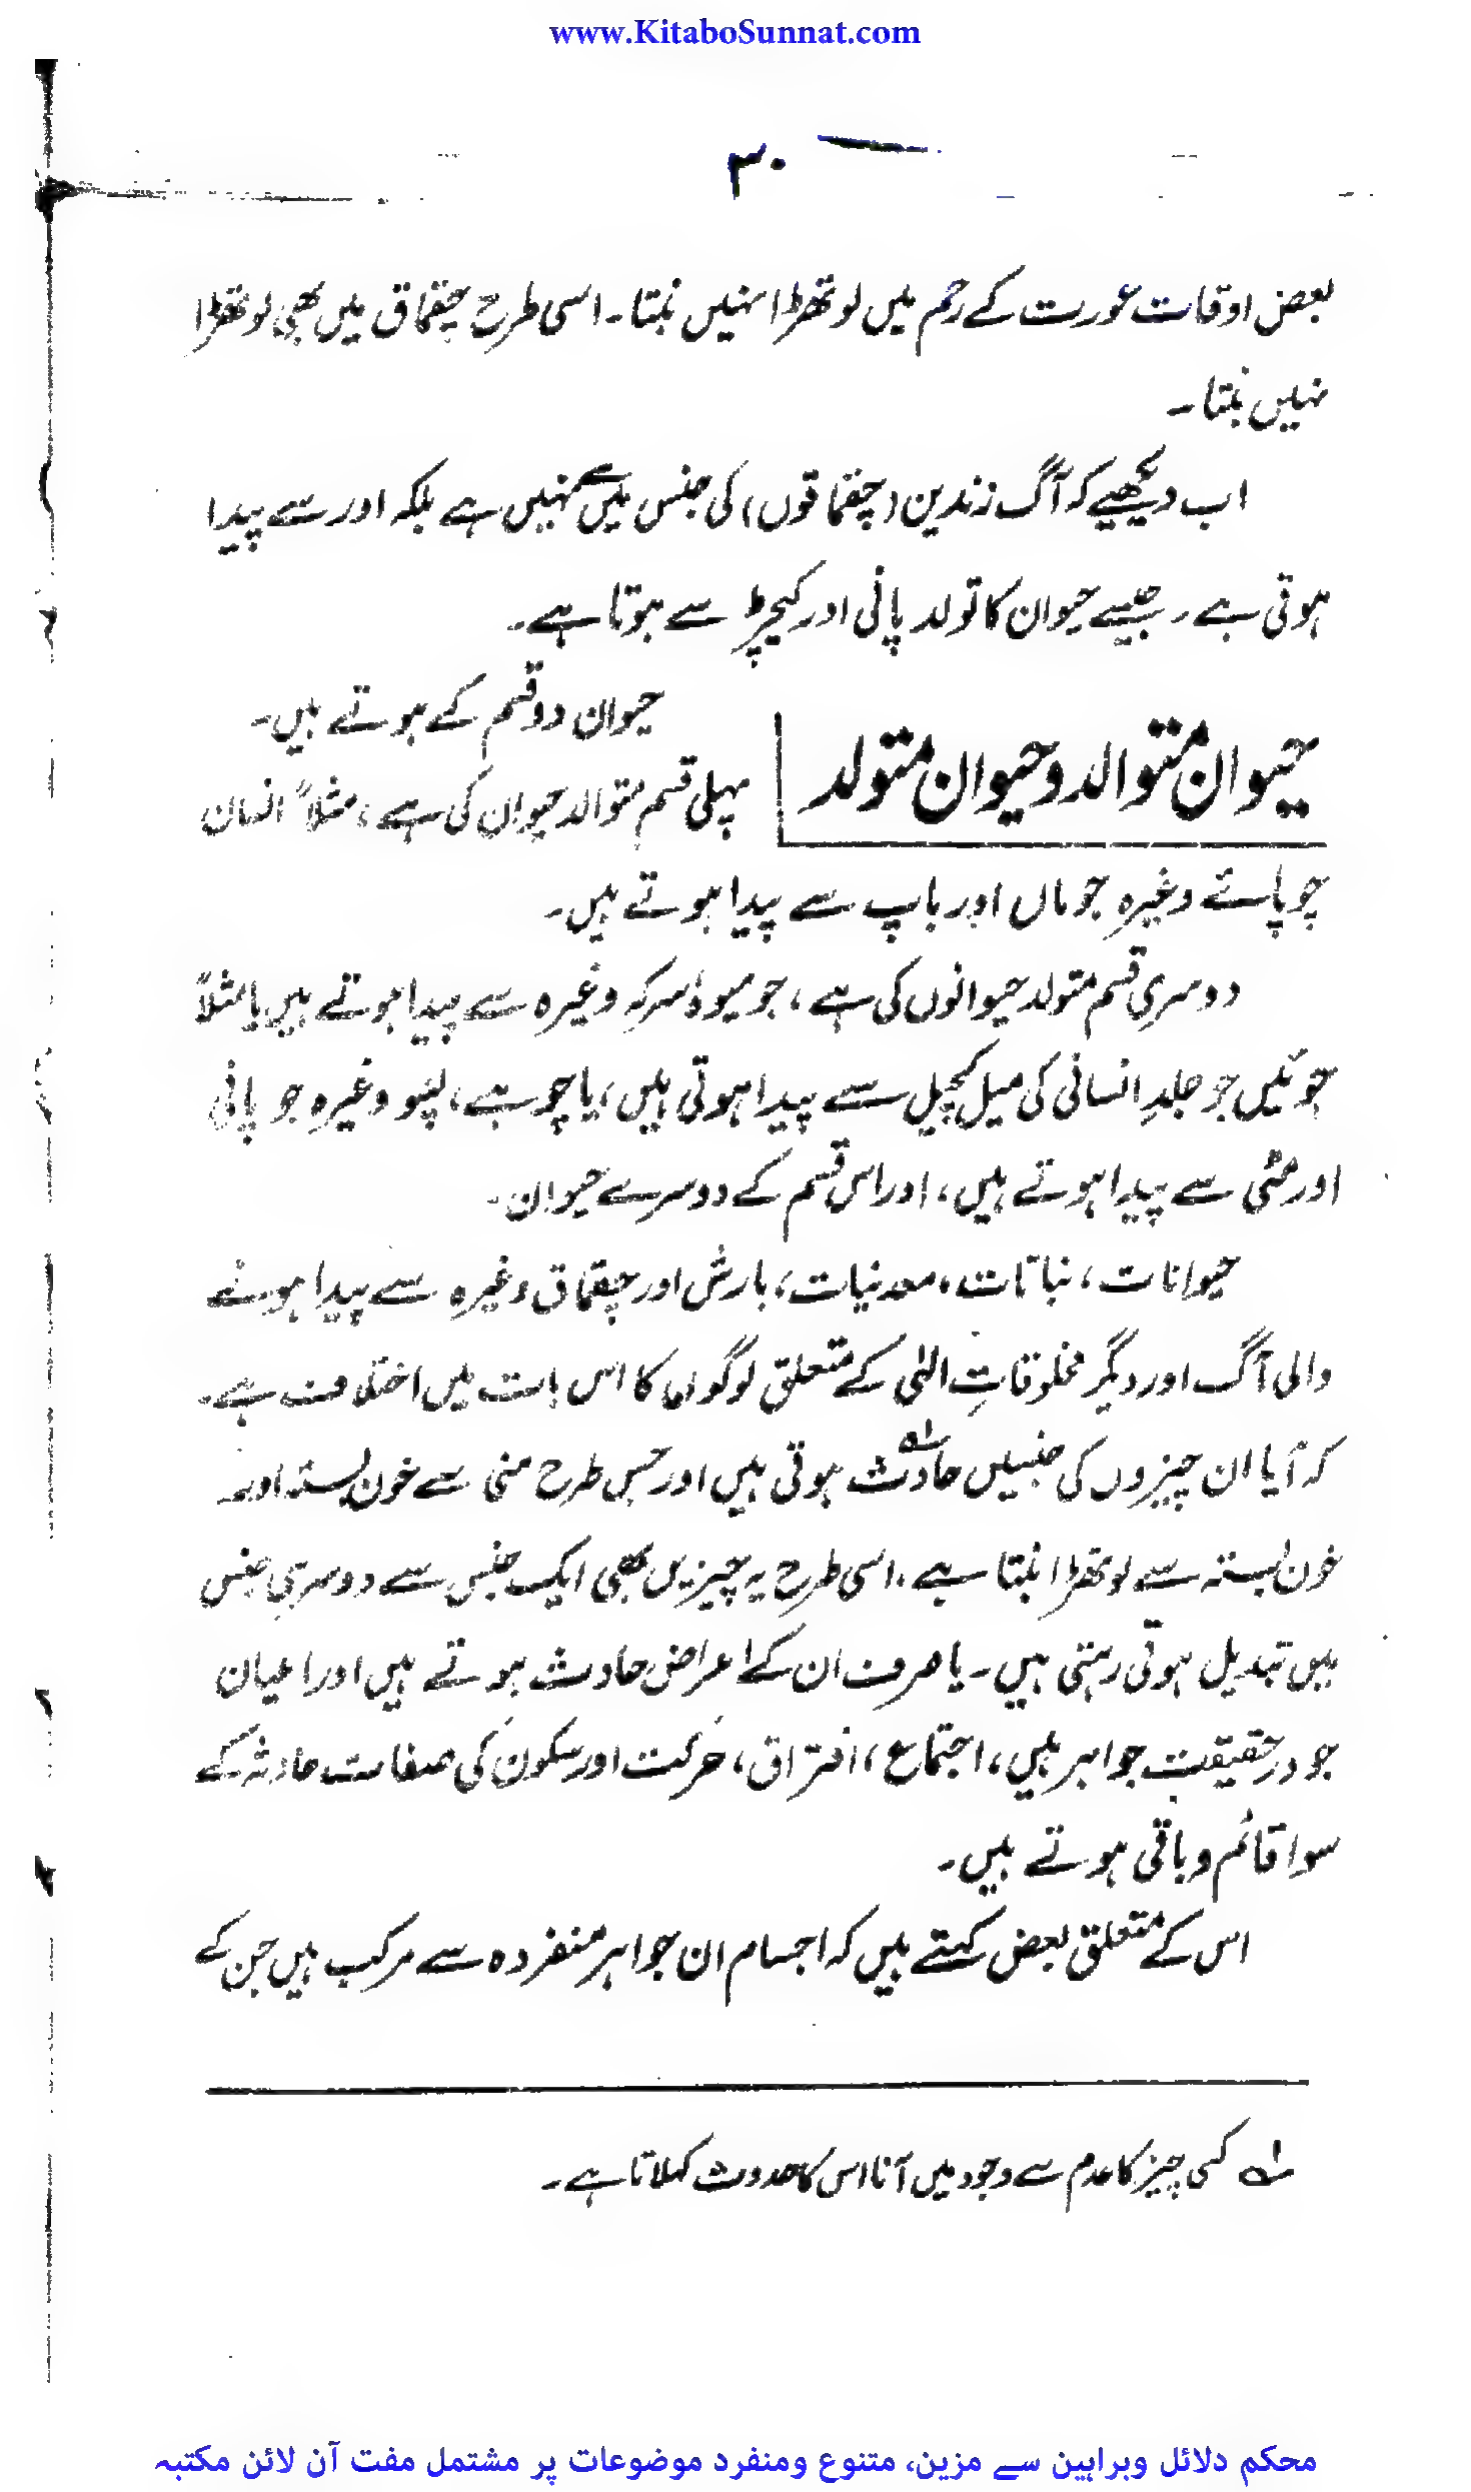 www.KitaboSunnat.com
۳۰
بعض اوقات عورت کے رحم میں لوتھڑا نہیں بنتا۔ اسی طرح چقماق میں بھی لوتھڑا
نہیں بنتا۔
اب دیکھیے کہ آگ زندین (چقماقوں) کی جنس میں سے نہیں ہے بلکہ اور سے پیدا
ہوتی ہے۔ جیسے حیوان کا تولد پانی اور کیچڑ سے ہوتا ہے۔
حیوان متوالد و حیوان متولد
حیوان دو قسم کے ہوتے ہیں۔
پہلی قسم متوالد حیوان کی ہے، مثلاً انسان
چوپائے وغیرہ جو ماں اور باپ سے پیدا ہوتے ہیں۔
دوسری قسم متولد حیوانوں کی ہے، جو میوۂ سرکہ وغیرہ سے پیدا ہوتے ہیں یا مثلاً
جوئیں جو جلدِ انسانی کی میل کچیل سے پیدا ہوتی ہیں، یا چوہے، پسو وغیرہ جو پانی
اور مٹی سے پیدا ہوتے ہیں، اور اس قسم کے دوسرے حیوان۔
حیوانات، نباتات، معدنیات، بارش اور چقماق وغیرہ سے پیدا ہونے
والی آگ اور دیگر مخلوقاتِ الٰہی کے متعلق لوگوں کا اس بات میں اختلاف ہے۔
کہ آیا ان چیزوں کی جنسیں حادث ۱؎ ہوتی ہیں اور جس طرح منی سے خون بستہ اور
خون بستہ سے لوتھڑا بنتا ہے۔ اسی طرح یہ چیزیں بھی ایک جنس سے دوسری جنس
میں تبدیل ہوتی رہتی ہیں۔ یا صرف ان کے اعراض حادث ہوتے ہیں اور اعیان
جو درحقیقت جواہر ہیں، اجتماع، افتراق، حرکت اور سکون کی صفات حادثہ کے
سوا قائم و باقی ہوتے ہیں۔
اس کے متعلق بعض کہتے ہیں کہ اجسام ان جواہر منفردہ سے مرکب ہیں جن کے
۱؎ کسی چیز کا عدم سے وجود میں آنا اس کا حدوث کہلاتا ہے۔
محکم دلائل وبراہین سے مزین، متنوع ومنفرد موضوعات پر مشتمل مفت آن لائن مکتبہ